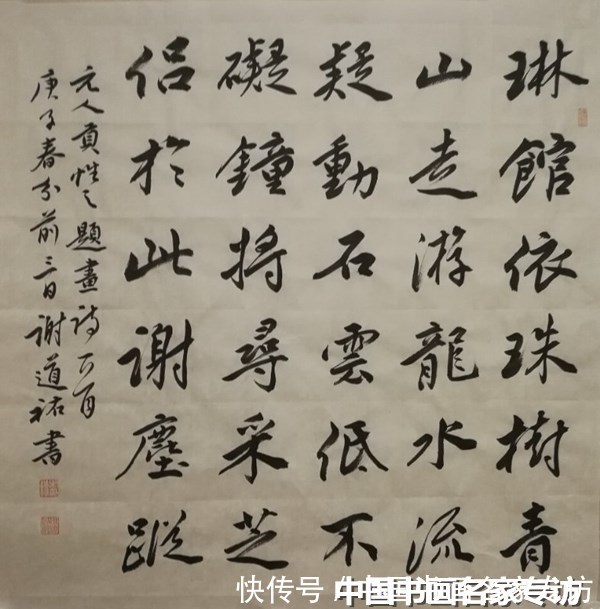 琳館依珠樹青
山走游龍水流
疑動石雲低不
礙鐘將尋采芝
侣於此謝塵蹤
元人貢性之題畫詩一首
庚子春分前三日謝道祐書
快传号 / 中国书画名家专访
中国书画名家专访